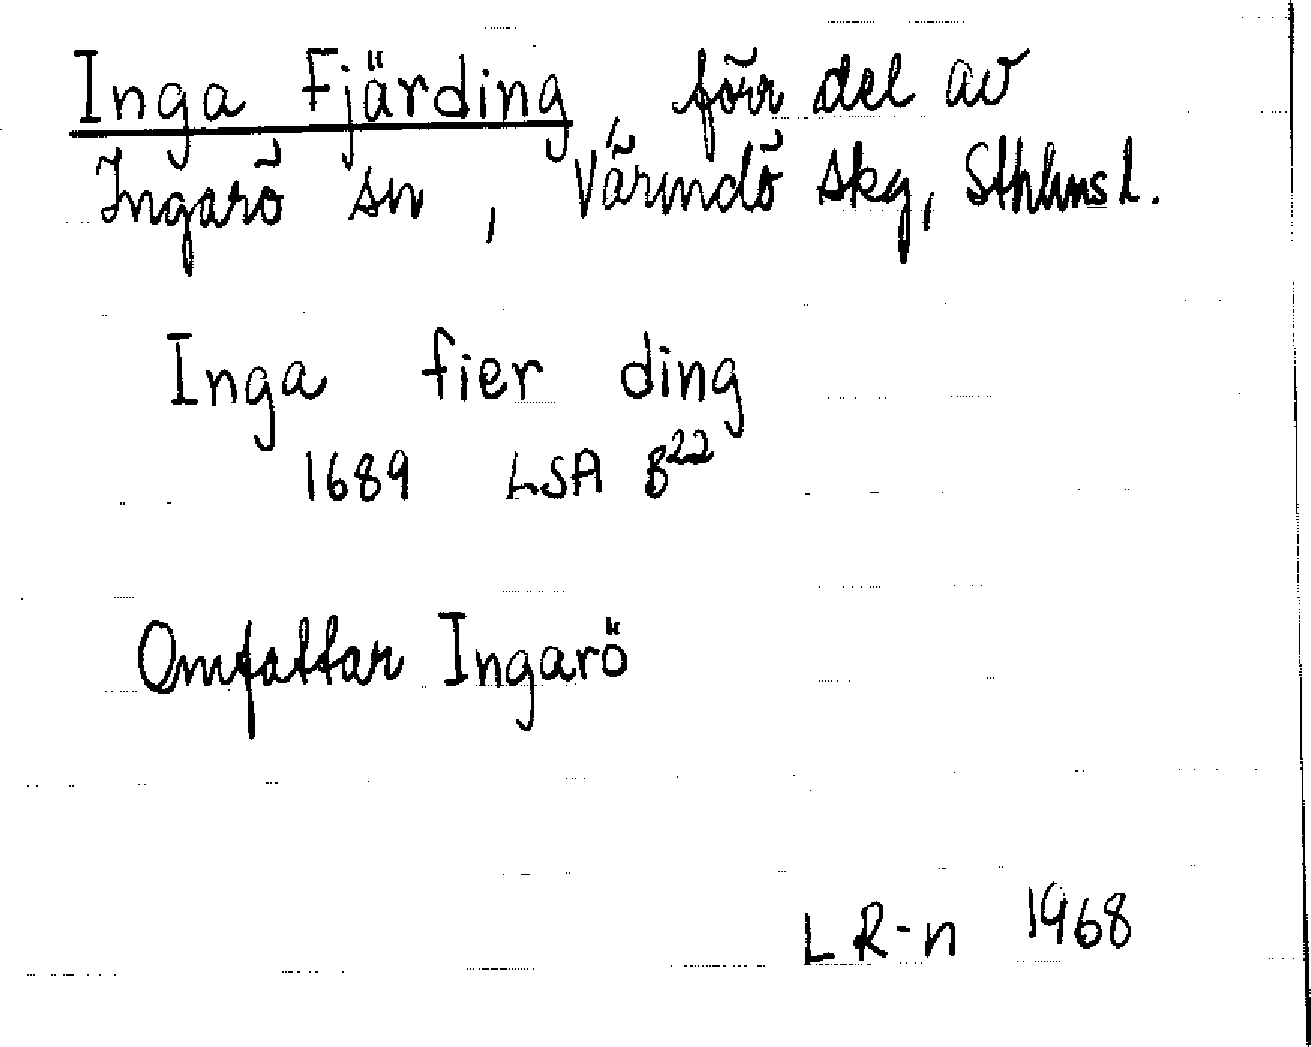 Inga Fjärding, förr del av
Ingarö sn, Värmdö skg, Sthlms l.
Inga fier ding
1689 LSA B22
Omfattar Ingarö
L R-n 1968